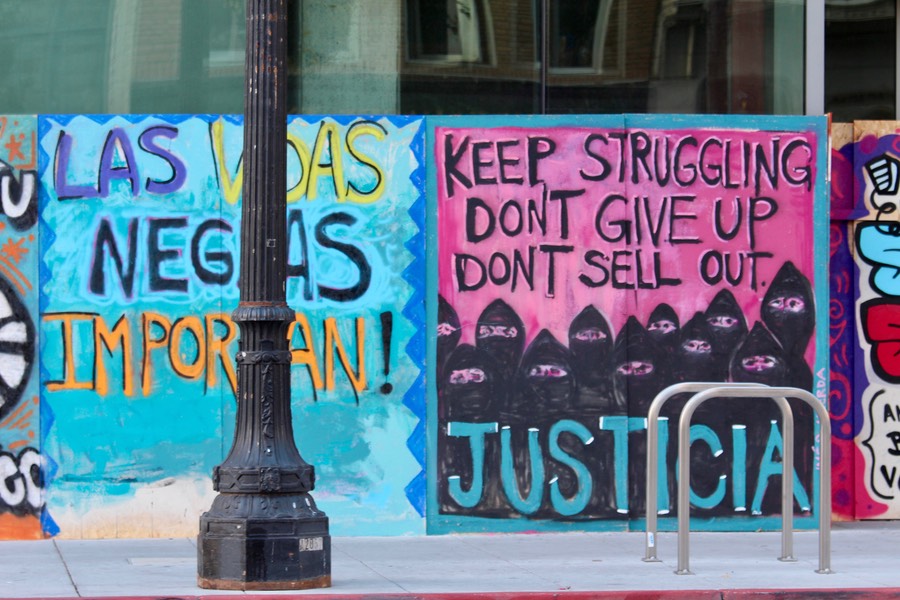 LAS VIDAS
NEGRAS
IMPORTAN!
KEEP STRUGGLING
DONT GIVE UP
DONT SELL OUT.
JUSTICIA